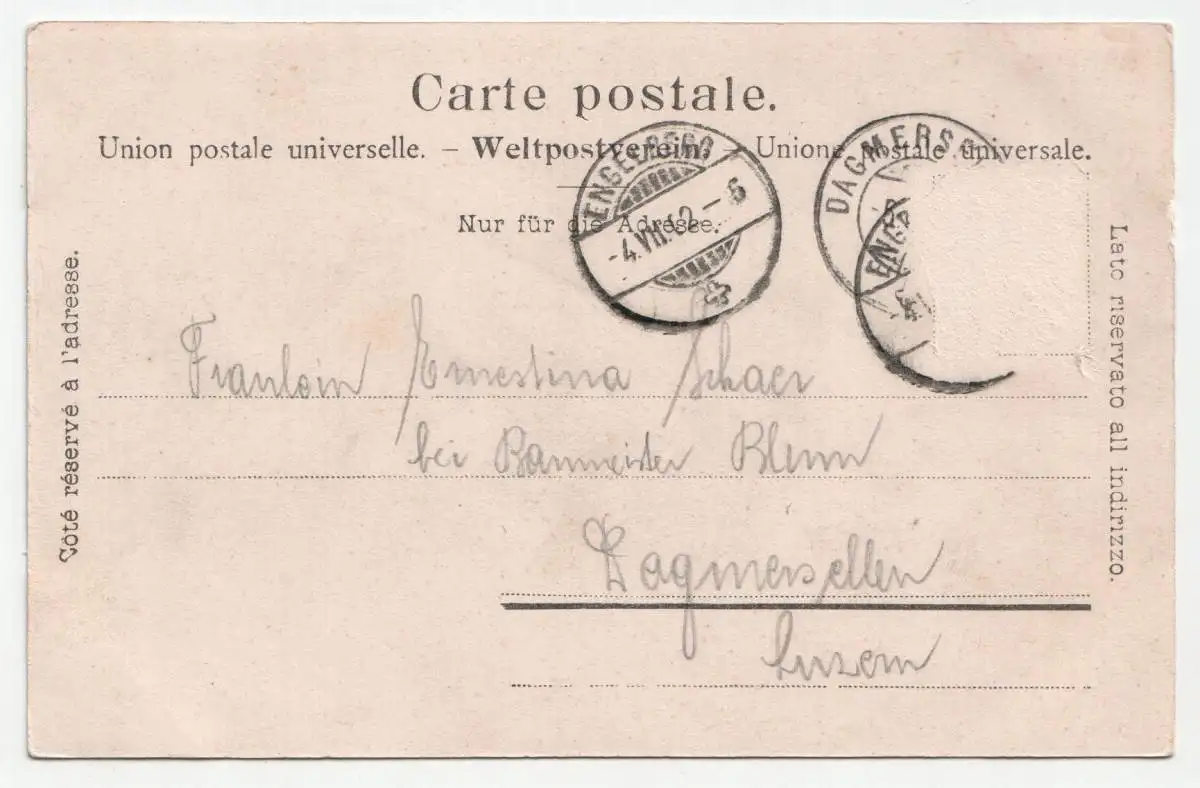 Carte postale.
Union postale universelle. – Weltpostverein. – Unione postale universale.
Nur für die Adresse.
ENGELBERG
-4.VII.02.-6
DAGMERS
ENG
Côté réservé à l'adresse.
Lato riservato all indirizzo.
Fräulein Ernestina Schaer
bei Baumeister Blum
Dagmersellen
Luzern